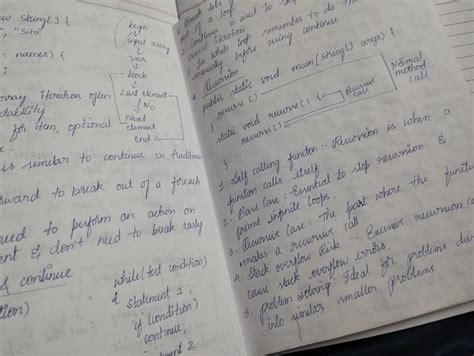 new String[] {
", "Sita"
: names) {
array iteration often
dability
for item, optional
is similar to continue in tradition
award to break out of a foreach
need to perform an action on
ent & don't need to break early
& continue
tion)
begin
input array
var
block
Last element
No
Next
element
end
while (test condition)
{ statement 1;
if (condition)
continue;
2
1. Break
out of a loop
2. Continue is used to
current iteration.
3. In while loop remember to do the
manually before using continue
Recursion
public static void main (String[] args) {
recurse ( )
}
static void recurse ( ) {
recurse ( )
}
Recursive
call
Normal
method
call
1. Self calling function :- Recursion is when a
function calls itself.
2. Base Case :- Essential to stop recursion &
prevent infinite loops.
3. Recursive Case :- The part where the functi
makes a recursive call
4. Stack overflow Risk :- Excessive recursion ca
cause stack overflow errors.
5. problem solving : Ideal for problems divi
into similar smaller problems